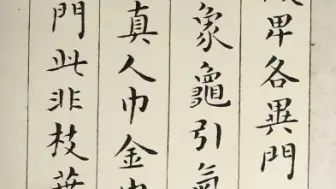 卑各異門
象龜引氣
真人巾金巾
門此非枝葉